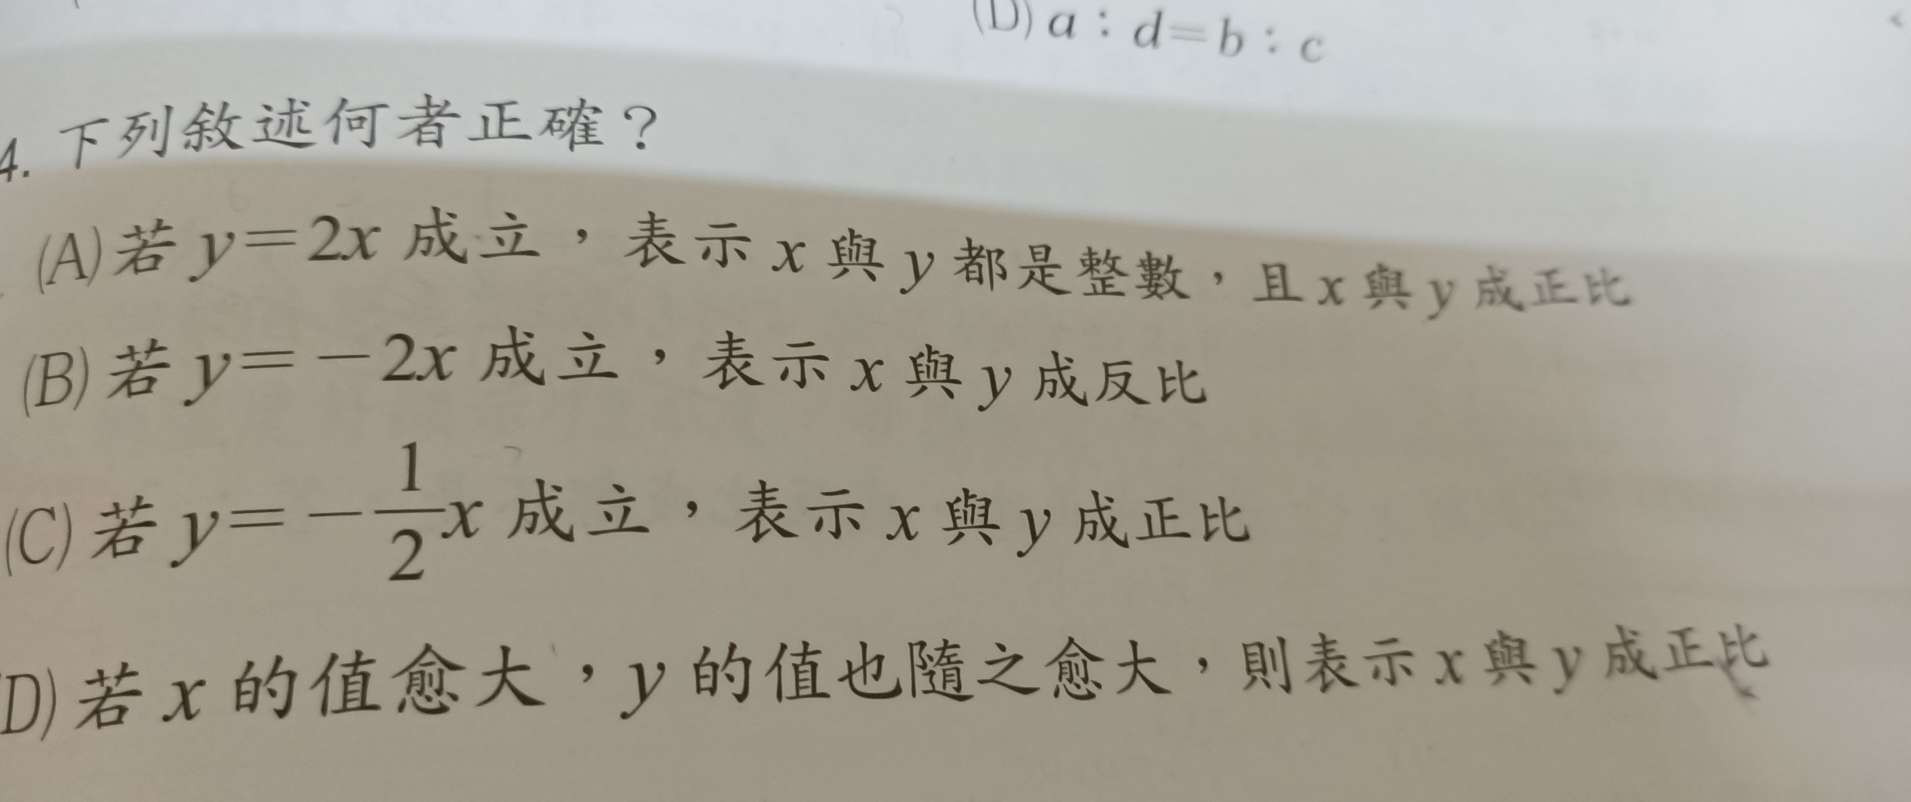 (D) a：d＝b：c
4. 下列敘述何者正確？
(A) 若 y＝2x 成立，表示 x 與 y 都是整數，且 x 與 y 成正比
(B) 若 y＝－2x 成立，表示 x 與 y 成反比
(C) 若 y＝－\frac{1}{2}x 成立，表示 x 與 y 成正比
(D) 若 x 的值愈大，y 的值也隨之愈大，則表示 x 與 y 成正比